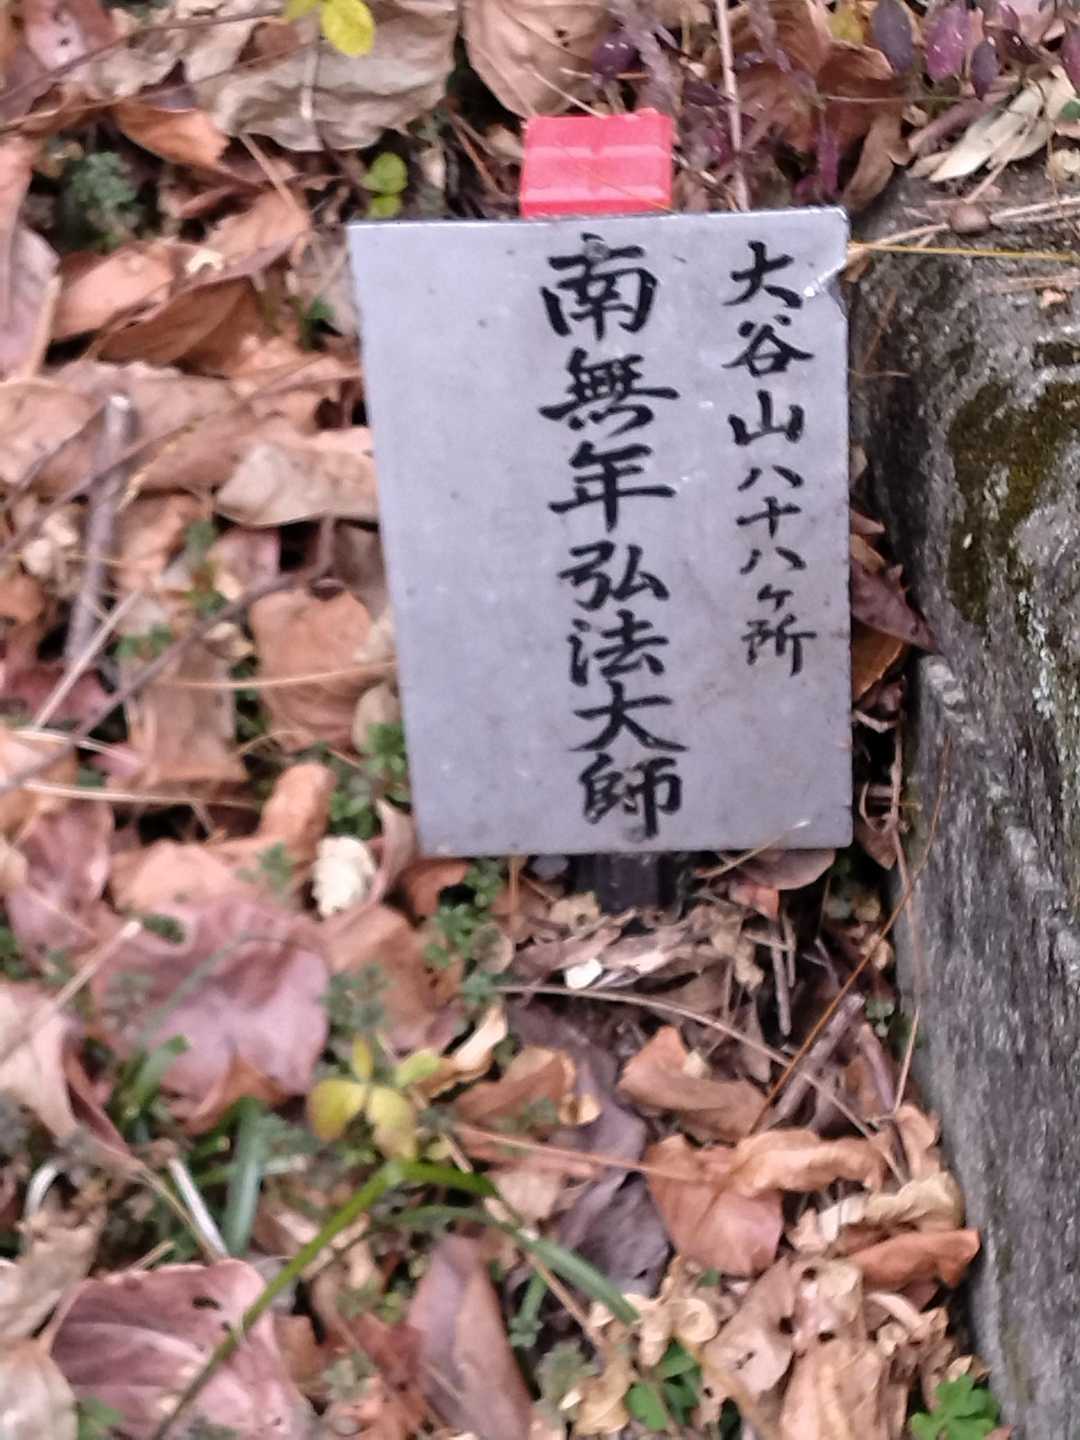 大谷山八十八ヶ所
南無年弘法大師